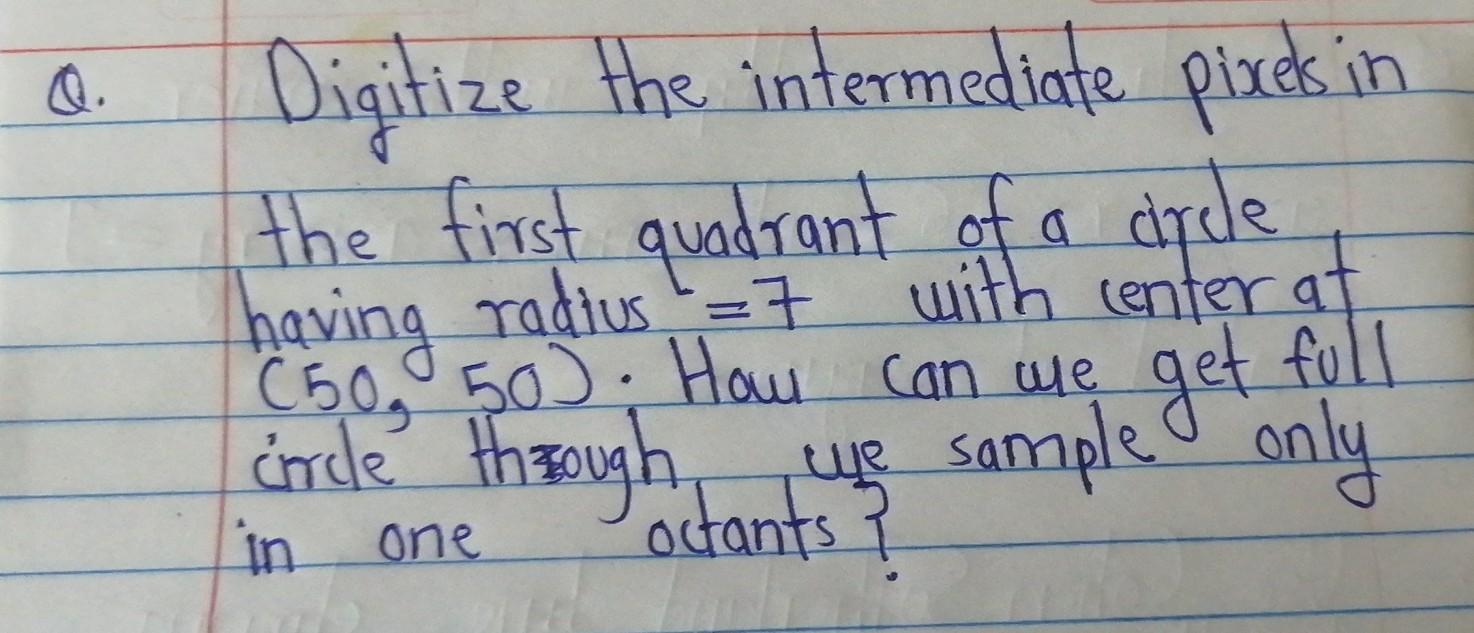 Q. Digitize the intermediate pixels in
the first quadrant of a circle
having radius = 7 with center at
(50, 50). How can we get full
circle through, we sample only
in one octants?